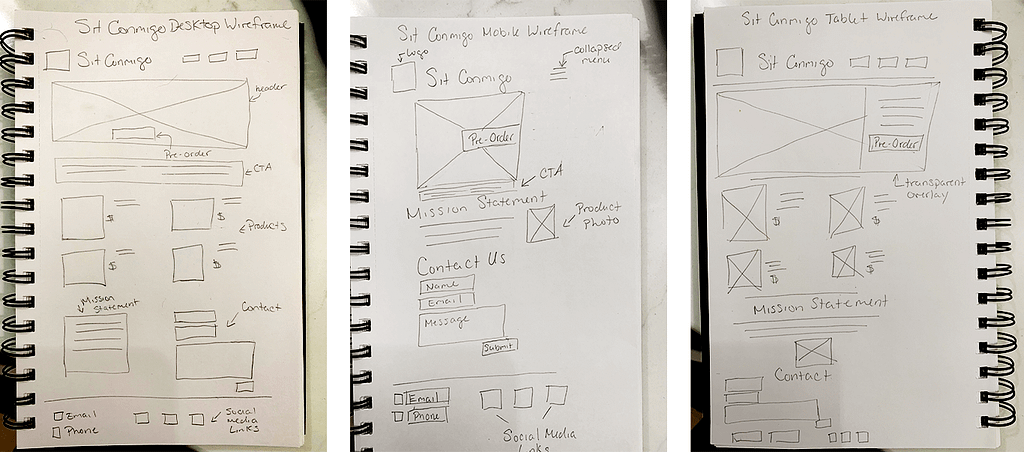 Sit Conmigo Desktop Wireframe
Sit Conmigo
header
Pre-order
CTA
$
$
Products
$
$
Mission
Statement
Contact
Email
Phone
Social
Media
Links
Sit Conmigo Mobile Wireframe
Logo
collapsed
menu
Sit Conmigo
Pre-Order
CTA
Mission Statement
Product
Photo
Contact Us
Name
Email
Message
Submit
Email
Phone
Social Media
Links
Sit Conmigo Tablet Wireframe
Sit Conmigo
Pre-Order
transparent
overlay
$
$
$
$
Mission Statement
Contact